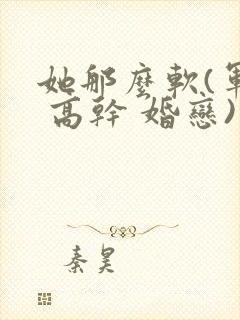 她那麼軟(軍
高幹 婚戀)
秦昊